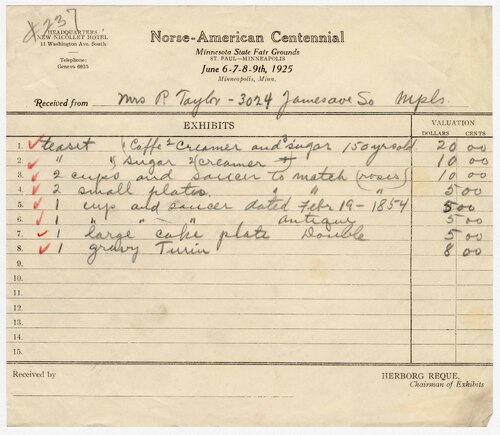 X237
HEADQUARTERS
NEW NICOLLET HOTEL
11 Washington Ave. South
Telephone:
Geneva 6835
Norse-American Centennial
Minnesota State Fair Grounds
ST. PAUL—MINNEAPOLIS
June 6-7-8-9th, 1925
Minneapolis, Minn.
Received from Mrs P. Taylor - 3024 James ave So Mpls
EXHIBITS VALUATION
DOLLARS CENTS
1. teaset Caffe Creamer and sugar 150 yrs old 20 00
2. " " sugar creamer 10 00
3. 2 cups and saucer to match (roses) 10 00
4. 2 small plates " " " 5 00
5. 1 cup and saucer dated Febr 19 - 1854 5 00
6. 1 " " " antique 5 00
7. 1 large cake plate Double 5 00
8. 1 gravy Turin 8 00
9.
10.
11.
12.
13.
14.
15.
Received by HERBORG REQUE,
Chairman of Exhibits